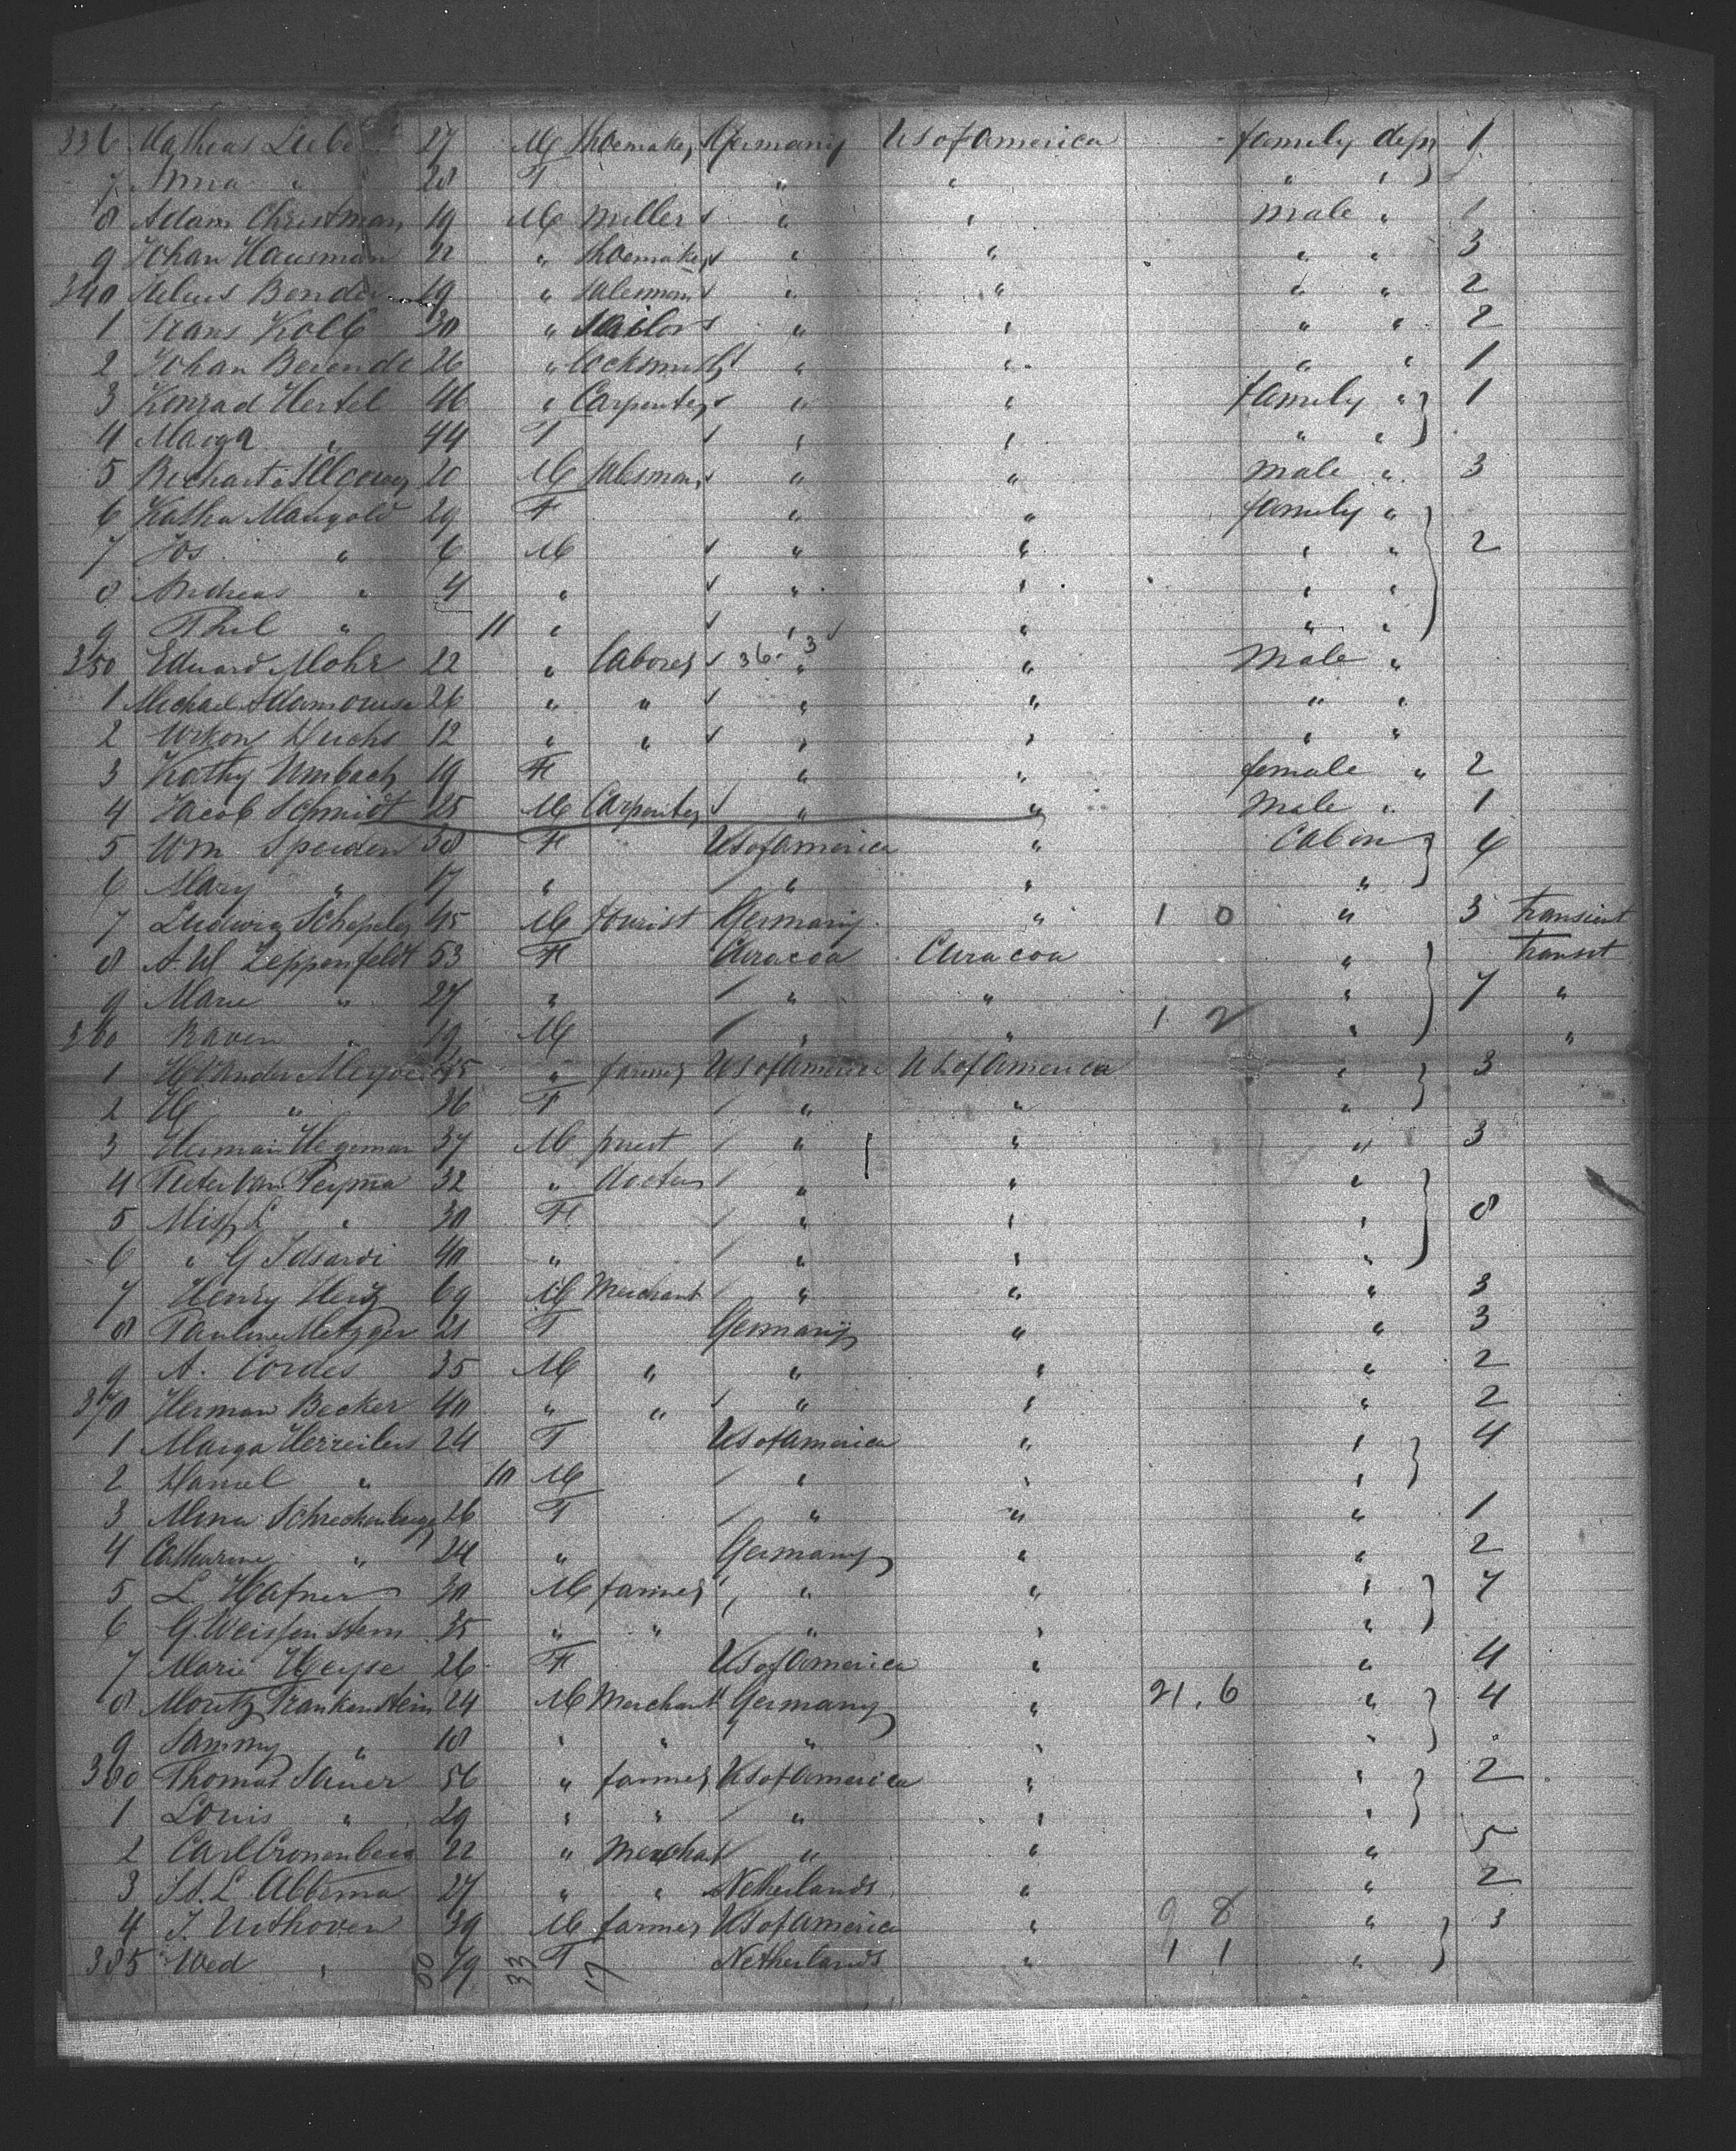 336 Mathias Liebe 27 M Shoemaker Germany US of America family dep 1
7 Anna " 28 F " " " "
8 Adam Christman 19 M Miller " " male " 1
9 Johan Hausman 22 " Shoemaker " " " " 3
340 Julius Bender 19 " Salesman " " " " 2
1 Frans Kolb 30 " Sailor " " " " 2
2 Johan Berende 26 " Locksmith " " " " 1
3 Konrad Hertel 46 " Carpenter " " family " 1
4 Marga " 44 F " " " "
5 20 M Salesman " " male " 3
6 Katha Mangold 29 F " " family "
7 Jos " 6 M " " " " 2
8 Andreas " 4 " " " " "
9 Phil " 11 " " " " "
350 Eduard Mohr 22 " laborer 36 - 3 " " Male "
1 Michael 26 " " " " " "
2 12 " " " " " "
3 Kathy Umbach 19 F " " female " 2
4 Jacob Schmidt 25 M Carpenter " " Male " 1
5 Wm Speiden 38 F US of America " Cabin 4
6 Mary " 17 " " " "
7 Ludwig Schepeler 45 M tourist Germany " 1 0 " 3 transient
8 A. W Zeppenfeldt 53 F Curacoa Curacoa " transit
9 Marie " 27 " " " " 7 "
360 Raven " 19 M " " 1 2 " "
1 H Vander Meyde 45 " farmer US of America US of America " 3
2 H " 36 F " " "
3 Herman Hegeman 37 M priest " " " 3
4 Pieter van Peyma 32 " doctor " " "
5 Miss L " 30 F " " " 8
6 " G Idsardi 40 " " " "
7 Henry Herz 69 M Merchant " " " 3
8 Pauline Metzger 21 F Germany " " 3
9 A. Cordes 35 M " " " " 2
370 Herman Becker 40 " " " " " 2
1 Marga 24 F US of America " " 4
2 Daniel " 10 M " " "
3 Mina Schreckenberg 26 F " " " 1
4 Catharine " 24 " Germany " " 2
5 L Hafner 30 M farmer " " " 7
6 G. Weissenstein 35 " " " " "
7 Marie Heyse 26 F US of America " " 4
8 Moritz Frankenstein 24 M Merchant Germany " 21. 6 " 4
9 Sammy " 18 " " " " "
380 Thomas Sauer 56 " farmer US of America " " 2
1 Louis " 29 " " " " "
2 Carl Cronenberg 22 " Merchant " " " 5
3 J. A. L. Abbema 27 " " Netherlands " " 2
4 J. Uithoven 39 M farmer US of America " 9 8 " 3
385 Wed " 79 F Netherlands " 1 1 "
50 33 17